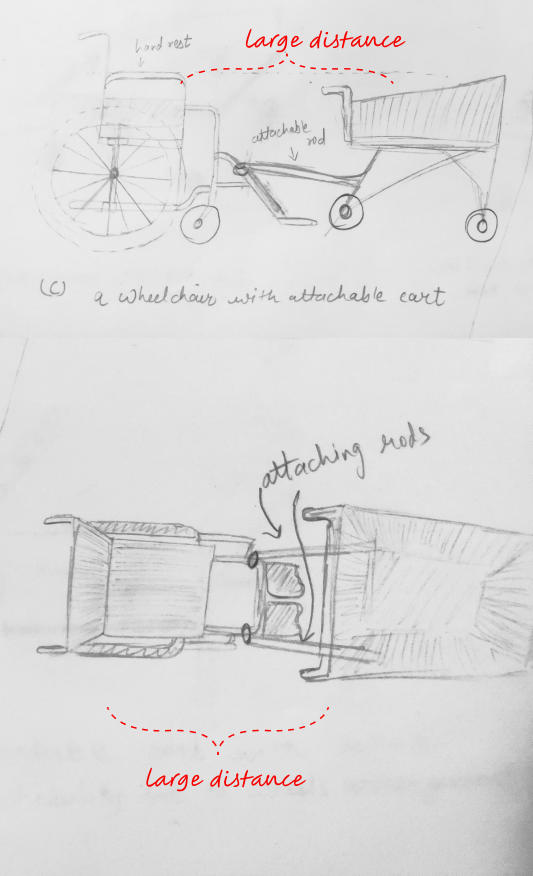 large distance
hand rest
attachable
rod
(C) a wheelchair with attachable cart
attaching rods
large distance